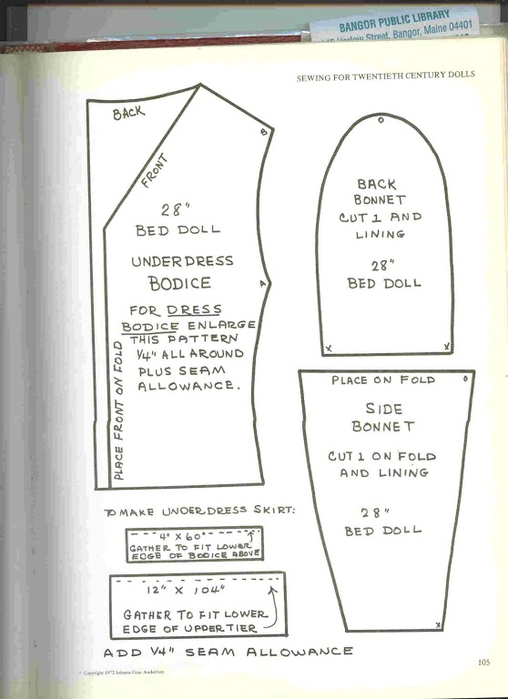 BANGOR PUBLIC LIBRARY
Street, Bangor, Maine 04401
SEWING FOR TWENTIETH CENTURY DOLLS
BACK
FRONT
B
28"
BED DOLL
UNDERDRESS
BODICE
A
FOR DRESS
BODICE ENLARGE
THIS PATTERN
1/4" ALL AROUND
PLUS SEAM
ALLOWANCE.
PLACE FRONT ON FOLD
O
BACK
BONNET
CUT 1 AND
LINING
28"
BED DOLL
X X
PLACE ON FOLD O
SIDE
BONNET
CUT 1 ON FOLD
AND LINING
28"
BED DOLL
X
TO MAKE UNDERDRESS SKIRT:
4" X 60"
GATHER TO FIT LOWER
EDGE OF BODICE ABOVE
12" X 104"
GATHER TO FIT LOWER
EDGE OF UPPER TIER
ADD 1/4" SEAM ALLOWANCE
105
Copyright 1972 Johana Gast Anderton